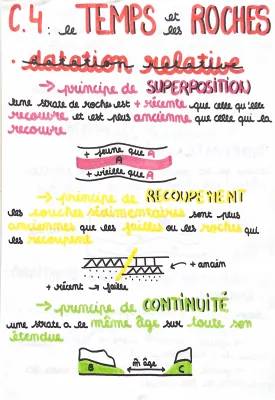 C.4 : le TEMPS et les ROCHES
• datation relative
→ principe de SUPERPOSITION
Une strate de roches est + récente que celle qu'elle
recouvre et est plus ancienne que celle qui la
recouvre
+ jeune que A
A
+ vieille que A
→ principe de RECOUPEMENT
les couches sédimentaires sont plus
anciennes que les failles ou les roches qui
les recoupent
→ + ancien
+ récent → failles
→ principe de CONTINUITÉ
une strate a le même âge sur toute son
étendue
B
m̂ âge
C